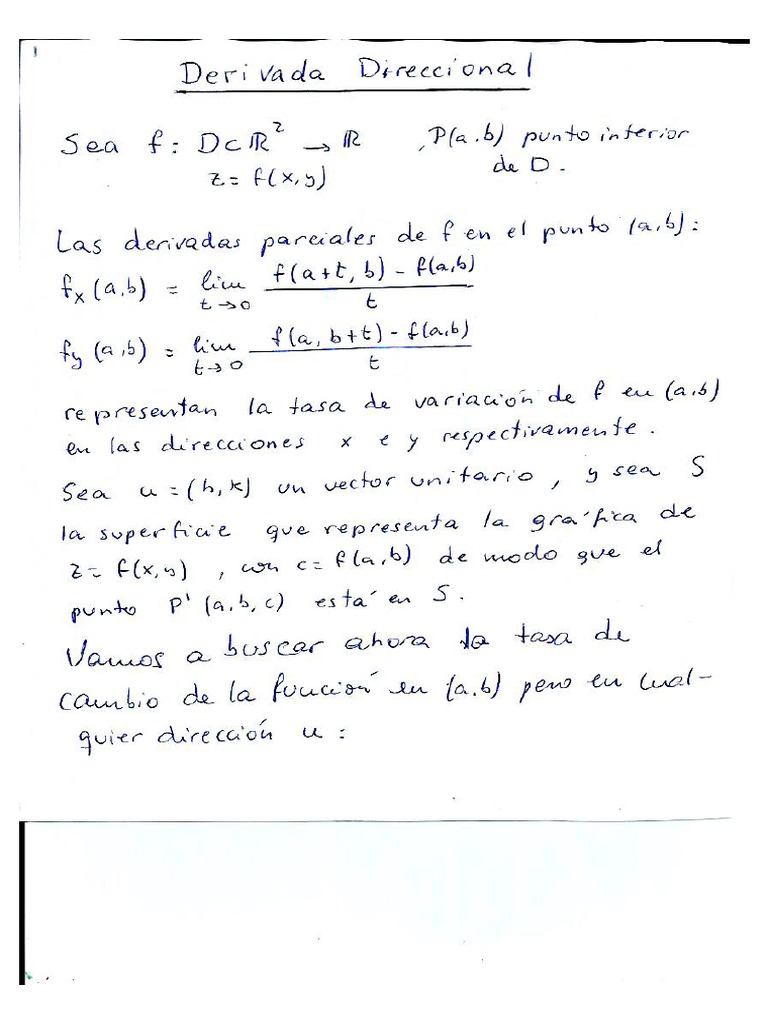 1
Derivada Direccional
Sea f: D⊂ℝ² → ℝ , P(a.b) punto interior
z = f(x,y) de D.
Las derivadas parciales de f en el punto (a,b):
fx (a,b) = lim t→0 f(a+t, b) - f(a,b) / t
fy (a,b) = lim t→0 f(a, b+t) - f(a,b) / t
representan la tasa de variación de f en (a,b)
en las direcciones x e y respectivamente.
Sea u = (h,k) un vector unitario, y sea S
la superficie que representa la gráfica de
z = f(x,y) , con c = f(a,b) de modo que el
punto P' (a,b,c) está en S.
Vamos a buscar ahora la tasa de
cambio de la función en (a,b) pero en cual-
quier dirección u :